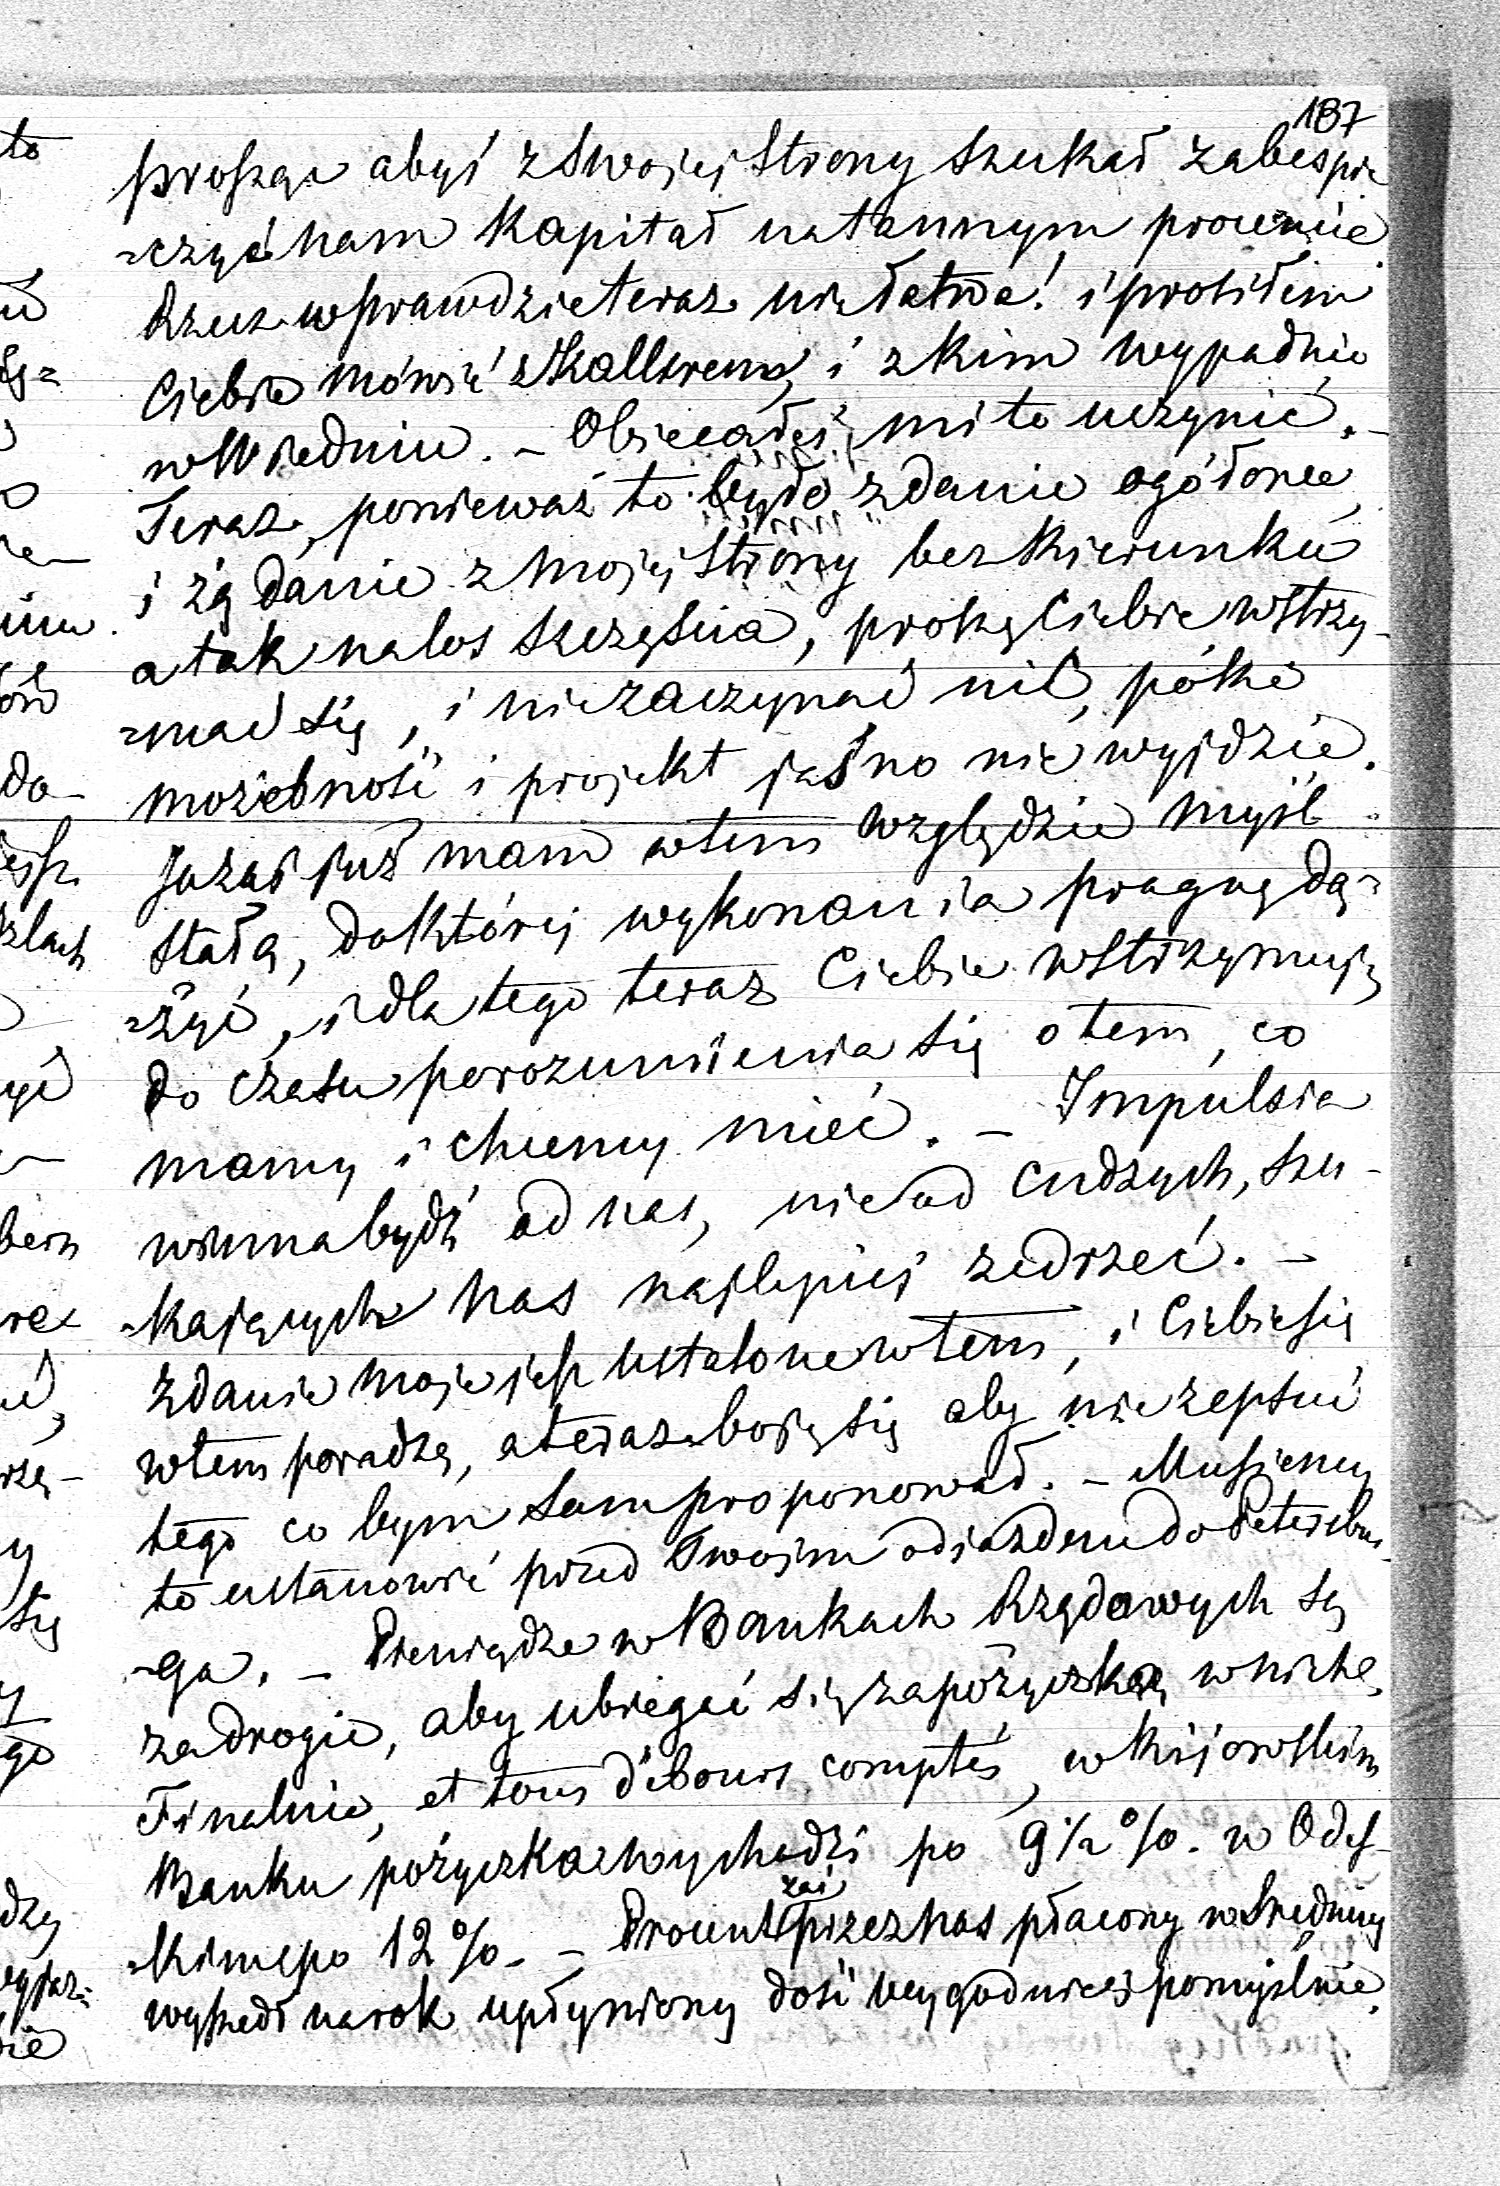 187
prosząc abyś z swojej strony szukał zabespie
=czyć nam Kapitał na tannym procencie.
Rzecz wprawdzie teraz nie łatwa! i prosiłem
Ciebie mówić z Kallirem, i z kim wypadnie
w Wiedniu. – Obiecałeś mi to uczynić. –
Teraz, ponieważ to było zdanie ogólone
i żądanie z mojej strony bez kierunku
a tak na los szczęścia, proszę Ciebie wstrzy-
=mać się, i nie zaczynać nic, póki
możebność i projekt jasno nie wyjdzie.
Ja zaś już mam w tem względzie myśl
stałą, do której wykonania pragnę dą=
=żyć, i dla tego teraz Ciebie wstrzymuję
do czasu porozumienia się o tem, co
mamy i chcemy mieć. – Impulsia
winna bydź od nas, nie od cudzych, szu-
-kających nas najlepiej zedrzeć. –
Zdanie moje jest ustalone w tem, i Ciebie się
w tem poradzę, a teraz boję się aby nie zepsuć
tego co bym sam proponował. – Musiemy
to ustanowić przed Twojim odjazdem do Petersbur-
-ga. – Pieniądze w Bankach Rządowych są
za drogie, aby ubiegać się za pożyczką w nich.
Finalnie, et tous débours comptés, w kijowskim
Banku pożyczka wychodzi po 9 1/2 %. w Odes-
-kim po 12 %. – Procent zaś przez nas płacony w średniej
wyszedł na rok upłyniony dość wygodnie i pomyślnie.